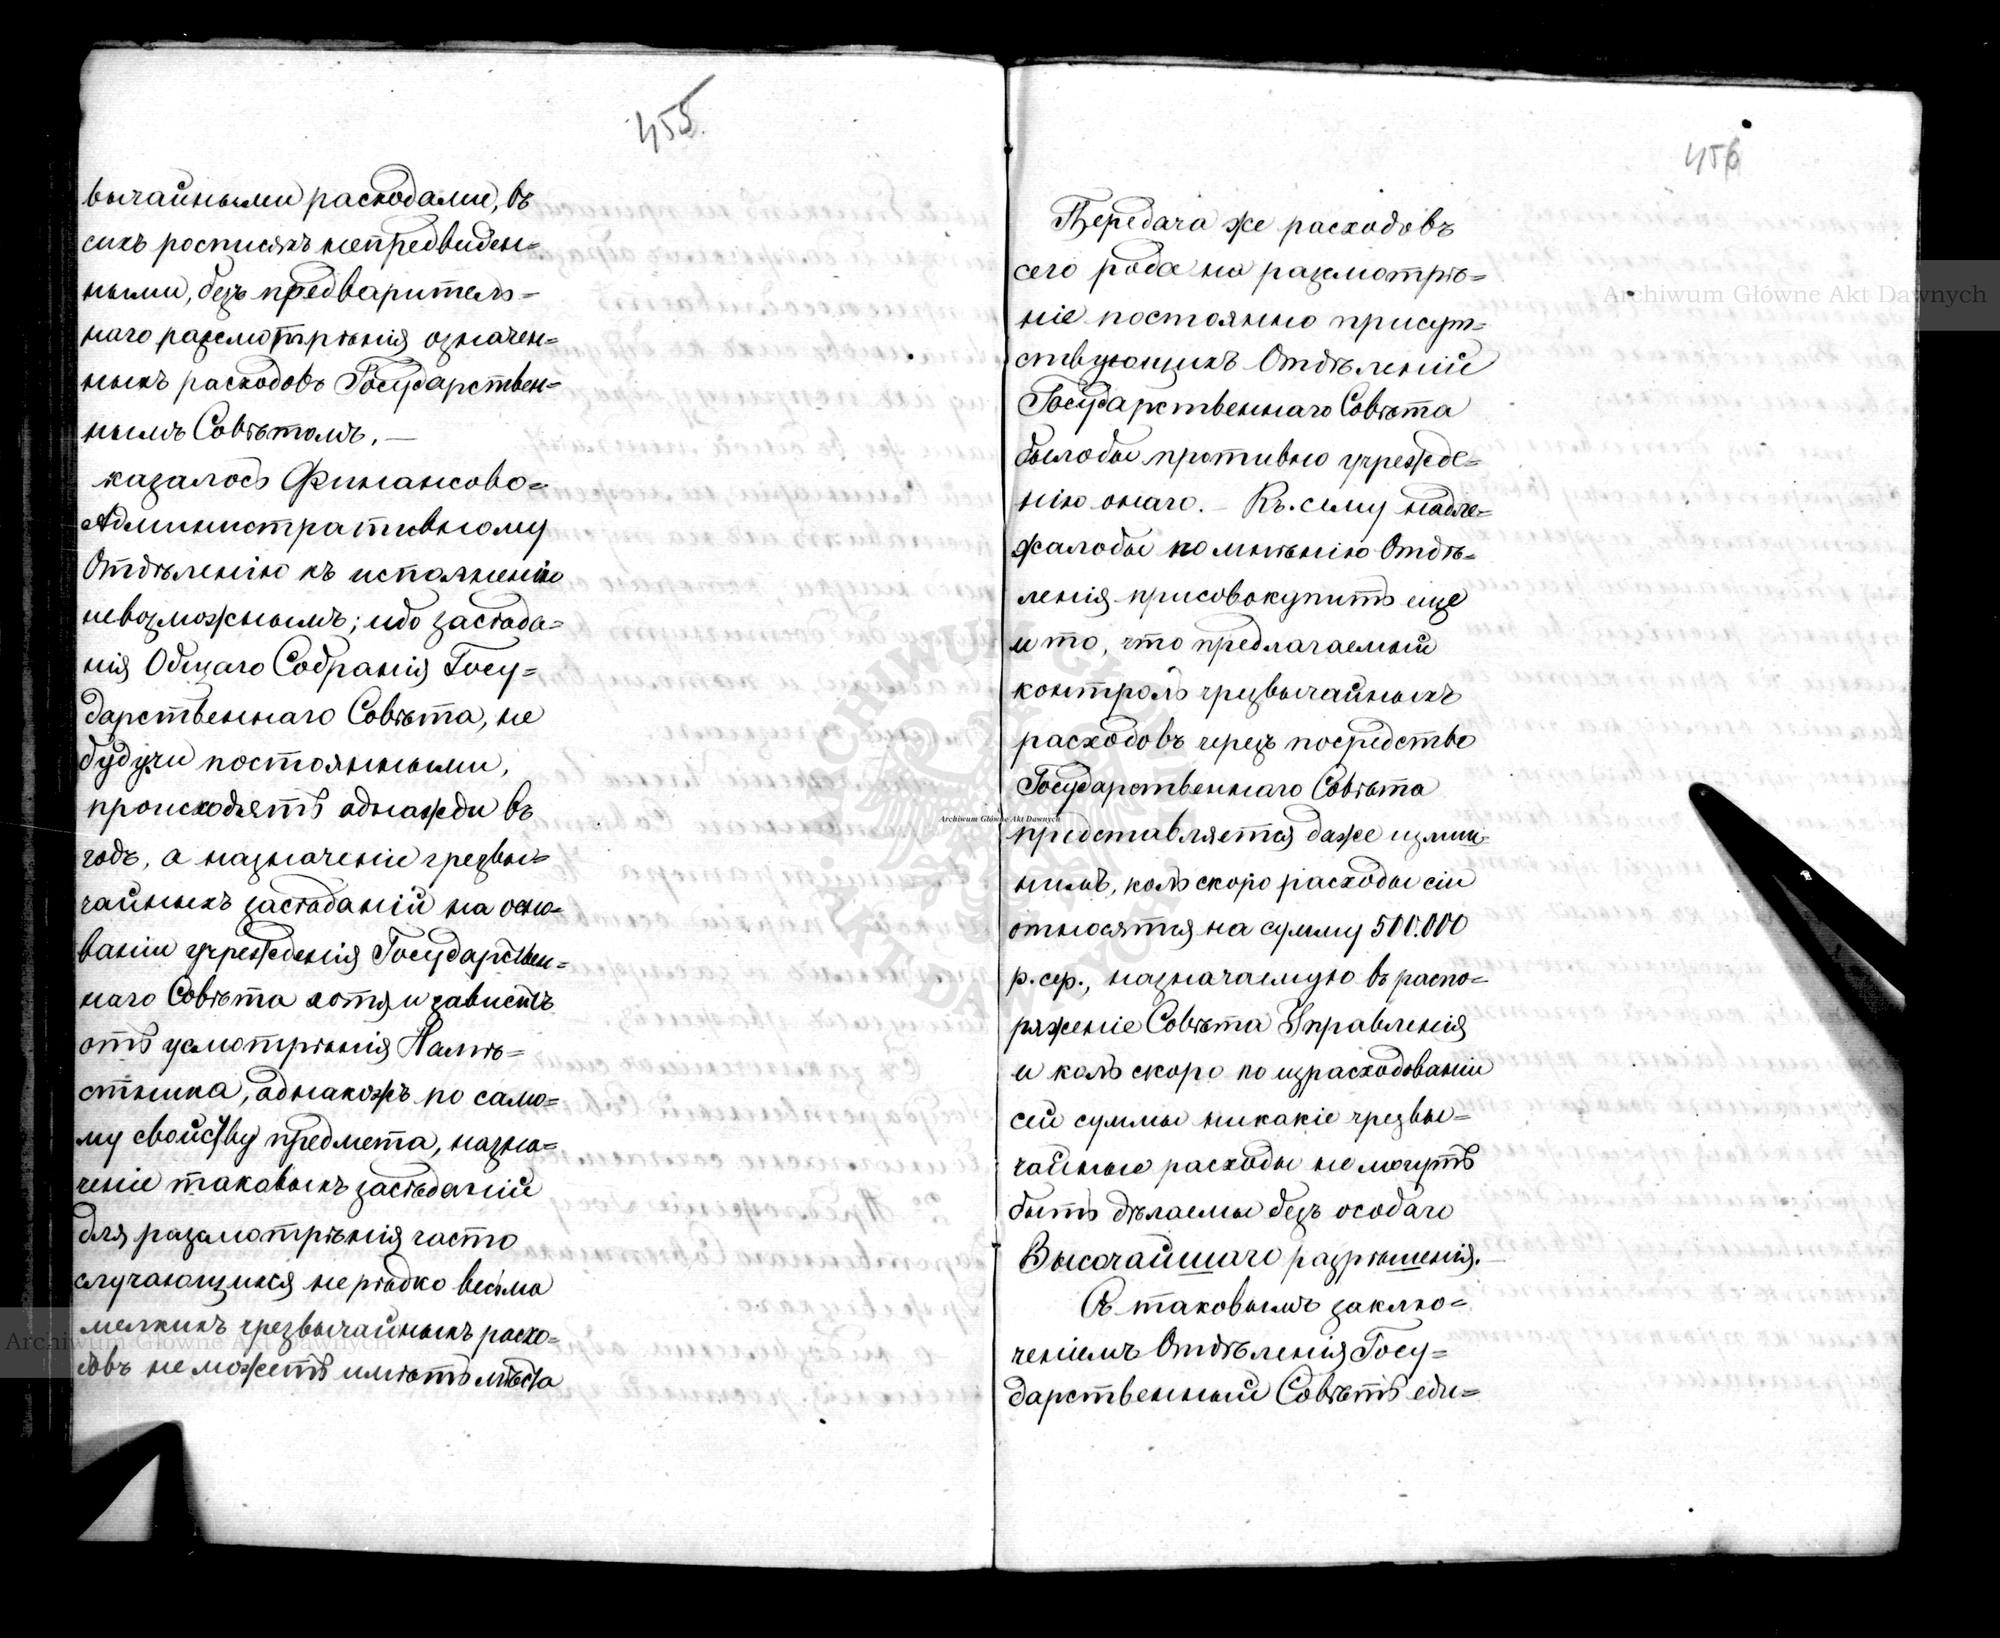 455.
вычайными расходами, въ
сихъ росписяхъ непредвиден=
ными, безъ предваритель=
наго разсмотрѣнія означен=
ныхъ расходовъ Государствен=
нымъ Совѣтомъ, —
казалось Финансово=
Административному
Отдѣленію къ исполненію
невозможнымъ; ибо засѣда=
нія Общаго Собранія Госу=
дарственнаго Совѣта, не
будучи постоянными,
происходятъ однажди въ
годъ, а назначеніе чрезвы=
чайныхъ засѣданій на осно=
ваніи учрежденія Государствен=
наго Совѣта хотя и зависитъ
отъ усмотрѣнія Намѣ=
стника, однакожъ по само=
му свойству предмета, назна=
ченіе таковыхъ засѣданій
для разсмотрѣнія часто
случающихся нерѣдко весьма
мелкихъ чрезвычайныхъ расхо=
довъ не можетъ имѣть мѣста
456
Передача же расходовъ
сего рода на разсмотрѣ=
ніе постоянно присут=
ствующихъ Отдѣленій
Государственнаго Совѣта
былобы противно учрежде=
нію онаго. — Къ сему надле=
жалобы по мнѣнію Отдѣ=
ленія присовокупить еще
и то, что предлагаемый
контроль чрезвычайныхъ
расходовъ черезъ посредство
Государственнаго Совѣта
представляется даже излиш=
нимъ, коль скоро расходы сіи
относятся на сумму 500.000
р. сер., назначаемую въ распо=
ряженіе Совѣта Управленія
и коль скоро по израсходованіи
сей суммы никакіе чрезвы=
чайные расходы не могутъ
быть дѣлаемы безъ особаго
Высочайшаго разрѣшенія. —
Съ таковымъ заклю=
ченіемъ Отдѣленія Госу=
дарственный Совѣтъ еди=
Archiwum Główne Akt Dawnych
Archiwum Główne Akt Dawnych
Archiwum Główne Akt Dawnych